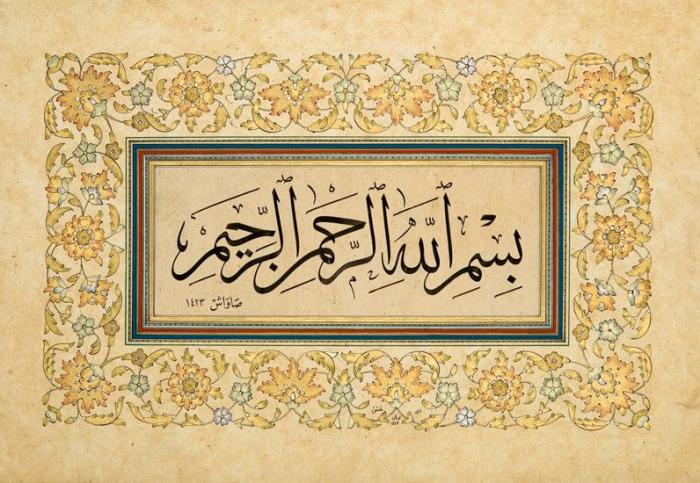 بِسْمِ ٱللَّهِ ٱلرَّحْمٰنِ ٱلرَّحِيمِ
صاواش ١٤٢٣